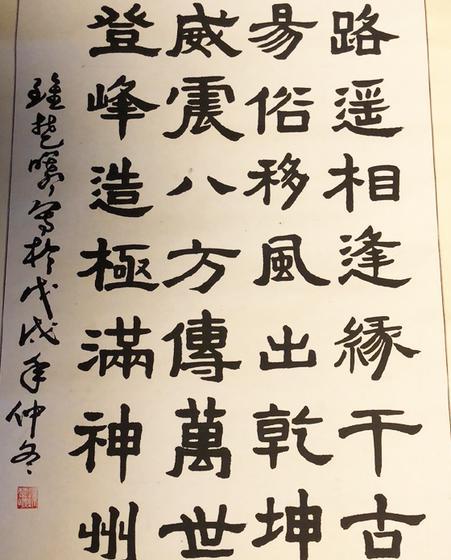 路遥相逢緣千古
易俗移風出乾坤
威震八方傳萬世
登峰造極滿神州
於戊戌年仲冬